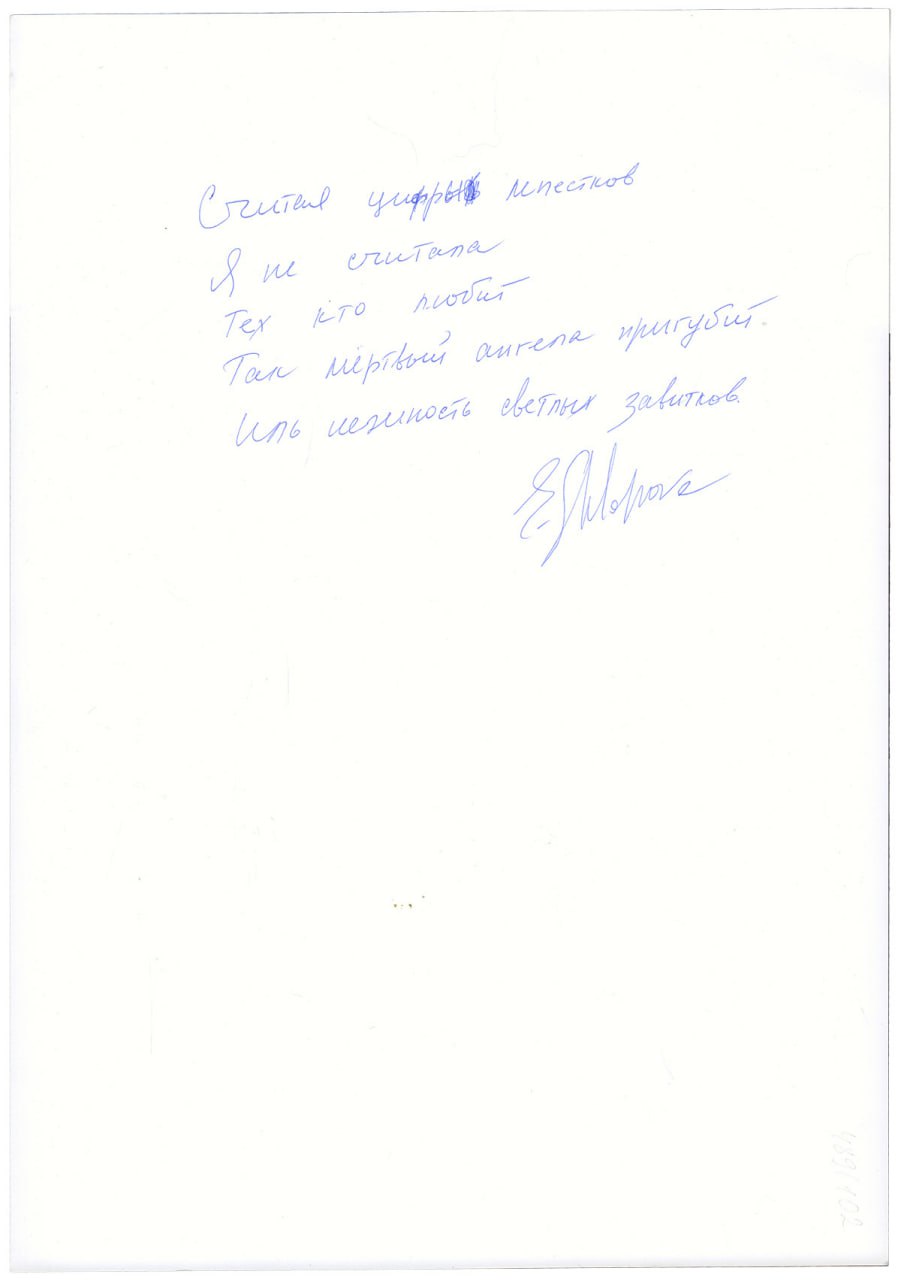 Считая цифры лепестков
Я не считала
Тех кто любит
Так мёртвый ангела пригубит
Иль нежность светлых завитков.